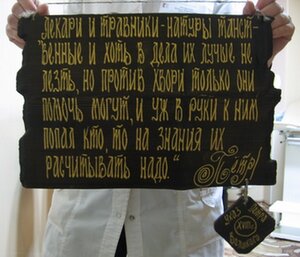 Лекари и травники - натуры таинст-
венные и хоть в дела их лучше не
лезть, но против хвори только они
помочь могут, и уж в руки к ним
попал кто, то на знания их
расчитывать надо."
Петръ
Указ
XVIII
Великого